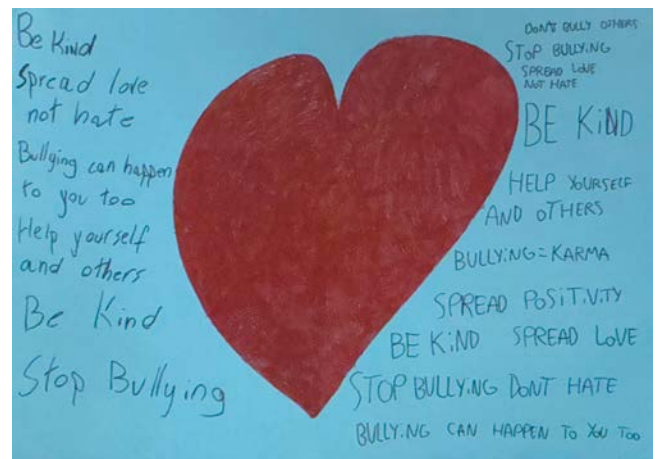 Be Kind
Spread love
not hate
Bullying can happen
to you too
Help yourself
and others
Be Kind
Stop Bullying
DON'T BULLY OTHERS
STOP BULLYING
SPREAD LOVE
NOT HATE
BE KIND
HELP YOURSELF
AND OTHERS
BULLYING=KARMA
SPREAD POSITIVITY
BE KIND SPREAD LOVE
STOP BULLYING DONT HATE
BULLYING CAN HAPPEN TO YOU TOO